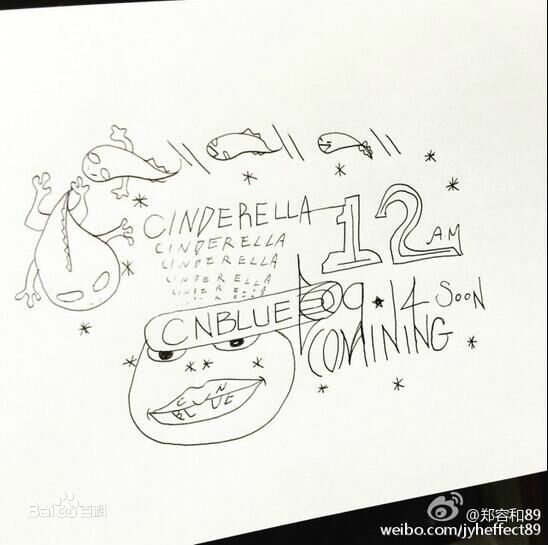 CINDERELLA 12 AM
CINDERELLA
CINDERELLA
CINDERELLA
CINDERELLA
CNBLUE 09★14 SOON
COMINING
C N
BLUE
Baidu百科
@郑容和89
weibo.com/jyheffect89